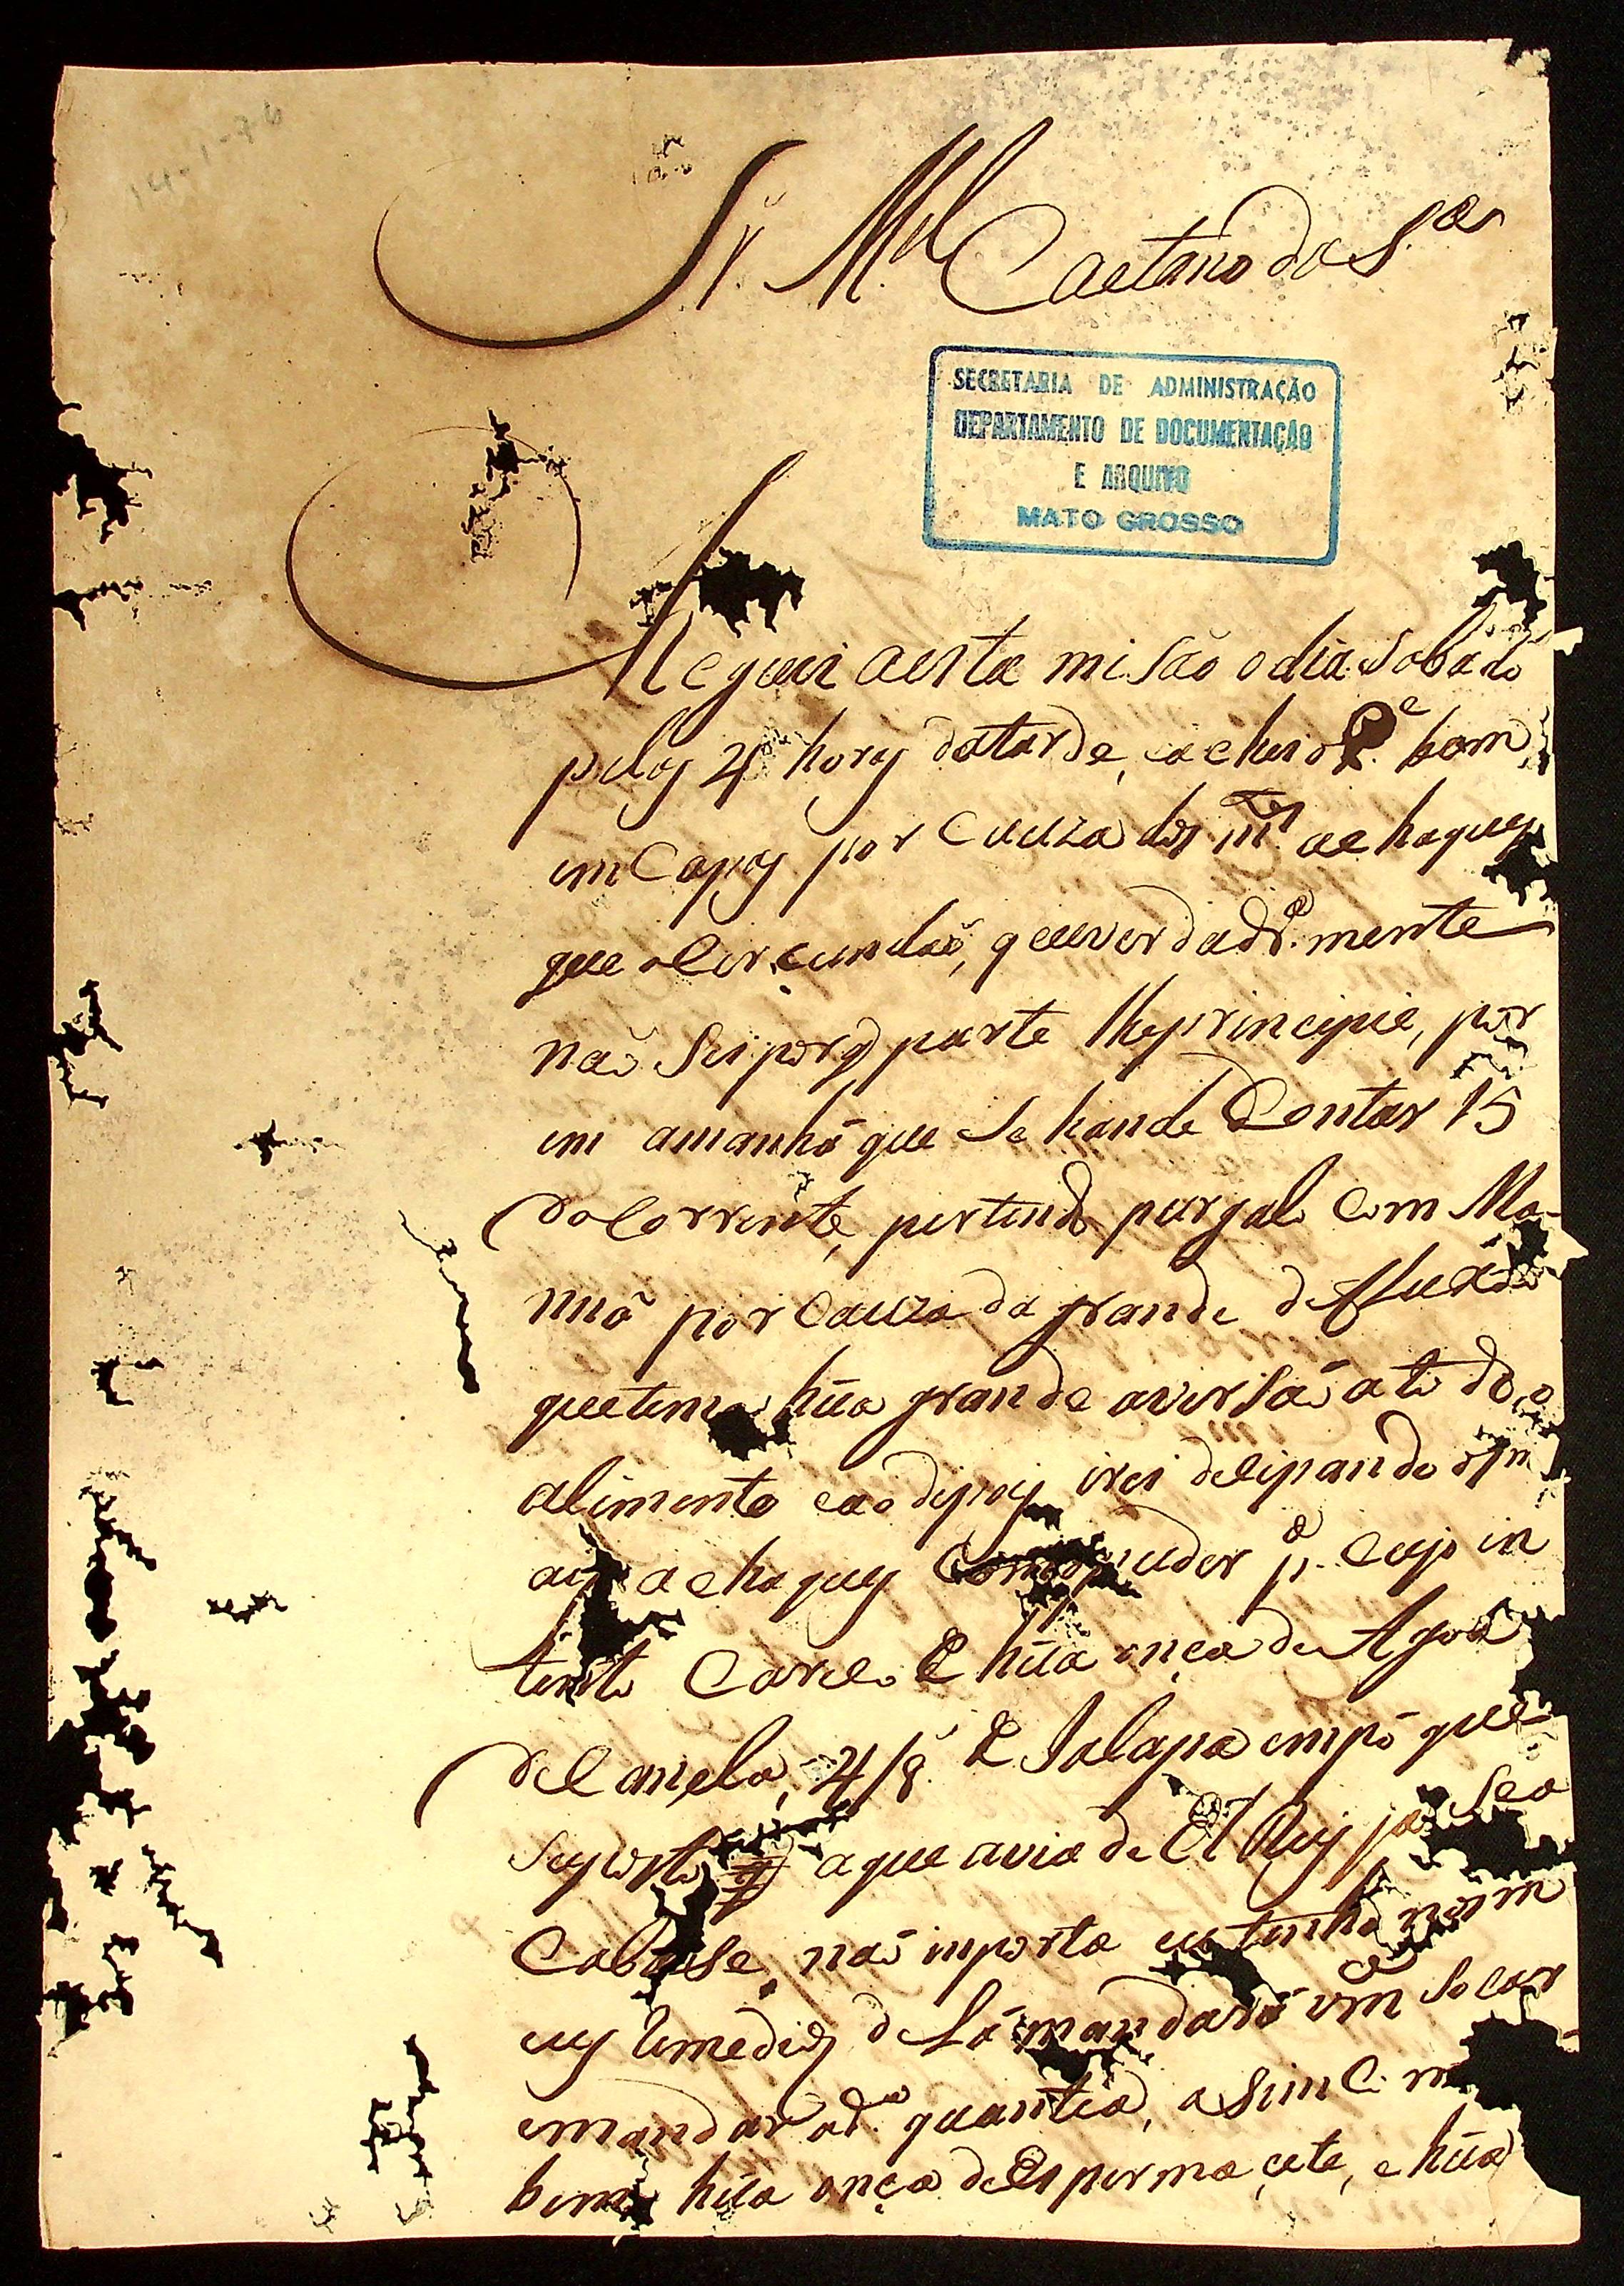 14-1-76
Sr. Mel Caetano do S.
SECRETARIA DE ADMINISTRAÇÃO
DEPARTAMENTO DE DOCUMENTAÇÃO
E ARQUIVO
MATO GROSSO
Cheguei aesta misão odia Sabado
pelas 4 horas datarde, eachei o P.e bem
em por Cauza dos achaques
que o Circundaõ, queverdadr.amente
naõ Sei porq parte lheprincipie, por
em amanhã que Se hande Contar 15
doCorrente, pertendo purgalo Com Ma-
nná por Cauza da grande defluxão
quetem, hũa grande aversaõ atodo o
alimento eaodipois irei delipando os m
ais achaques Comopuder p.a Cujo in
tento Careço de hũa onça de Agoa
deCanela, 4/8.as de Jalapa empó que
Suposto q aque avia de El Rey ja Sea
Cabase, naõ inporta eu tenho nos m
eus Remedios de Lá mandará vm Socar
emandar ad.a quantia, asim Com
bem hũa onça deEspermacete, e hũa